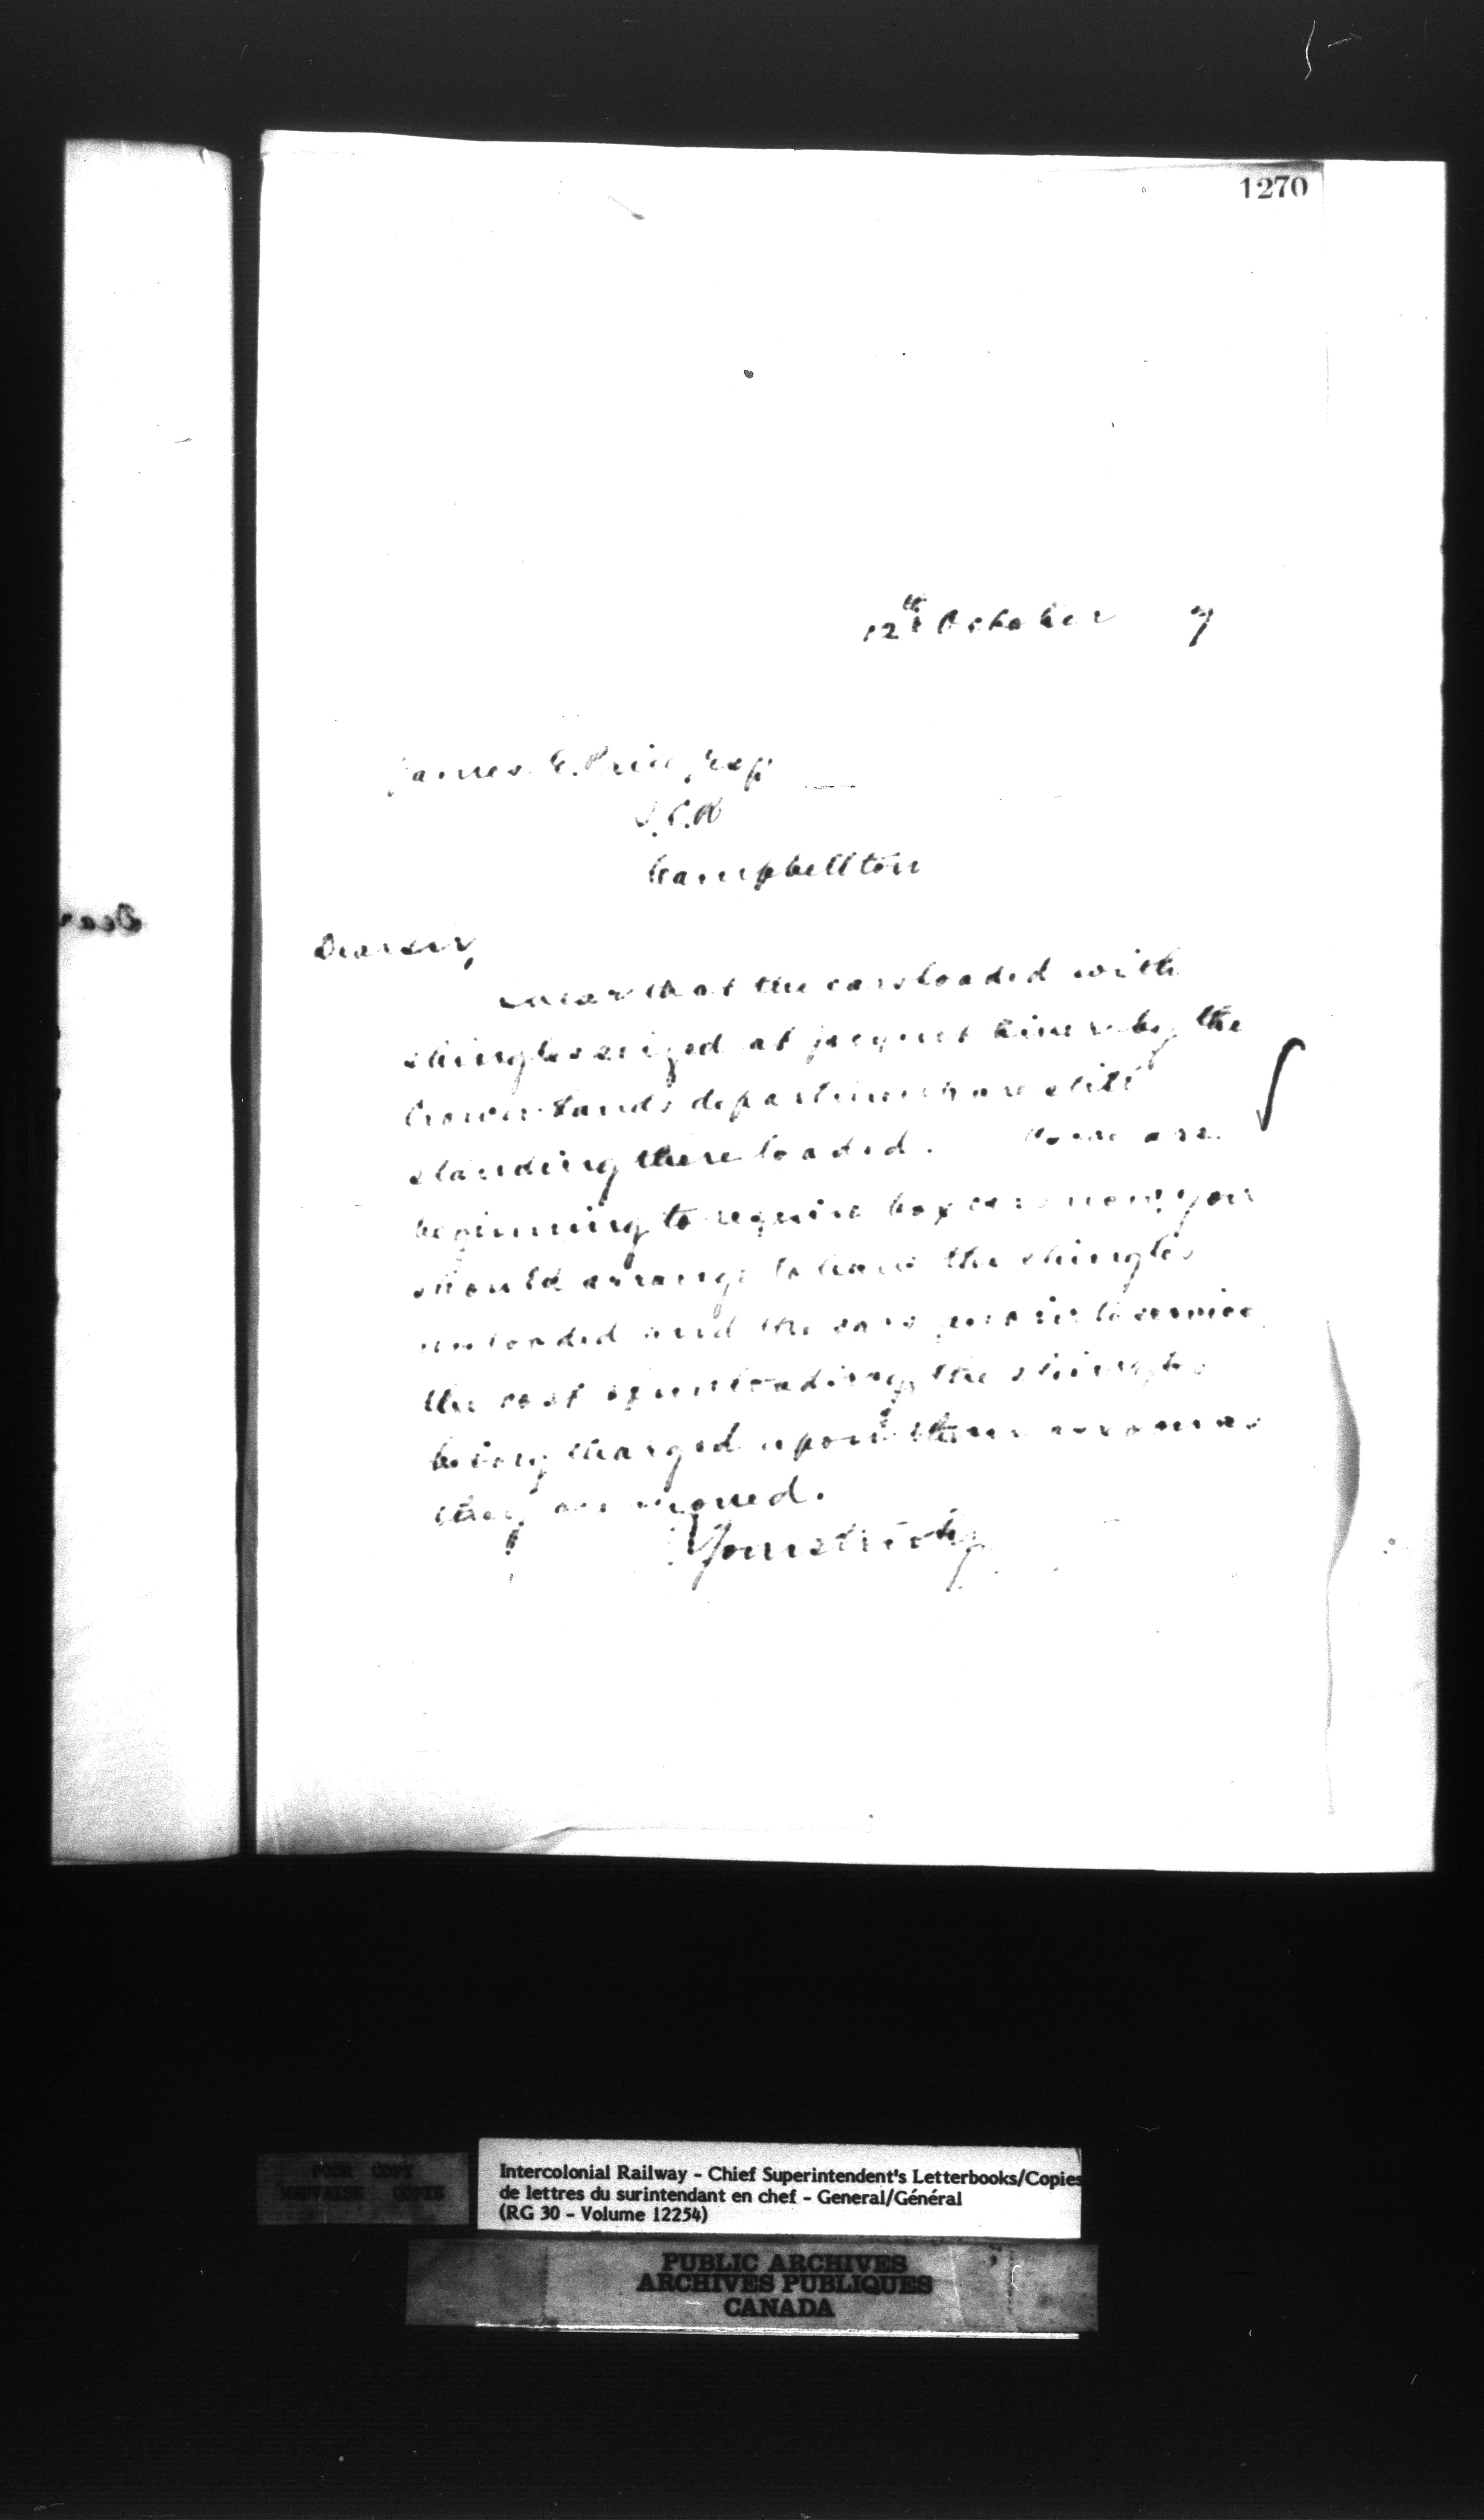 1270
12th October 7
James E. Price, Esq
I.C.R
Campbellton
Dear Sir,
that the cars loaded with
shingles seized at Jacquet River by the
Crown Lands department are still
standing there loaded. are
beginning to require box cars now, you
should arrange to have the shingles
unloaded and the cars put into service
the cost of unloading the shingles
being charged upon them as soon as
they are moved.
Yours truly
Dear
POOR COPY
MAUVAISE COPIE
Intercolonial Railway - Chief Superintendent's Letterbooks/Copies
de lettres du surintendant en chef - General/Général
(RG 30 - Volume 12254)
PUBLIC ARCHIVES
ARCHIVES PUBLIQUES
CANADA